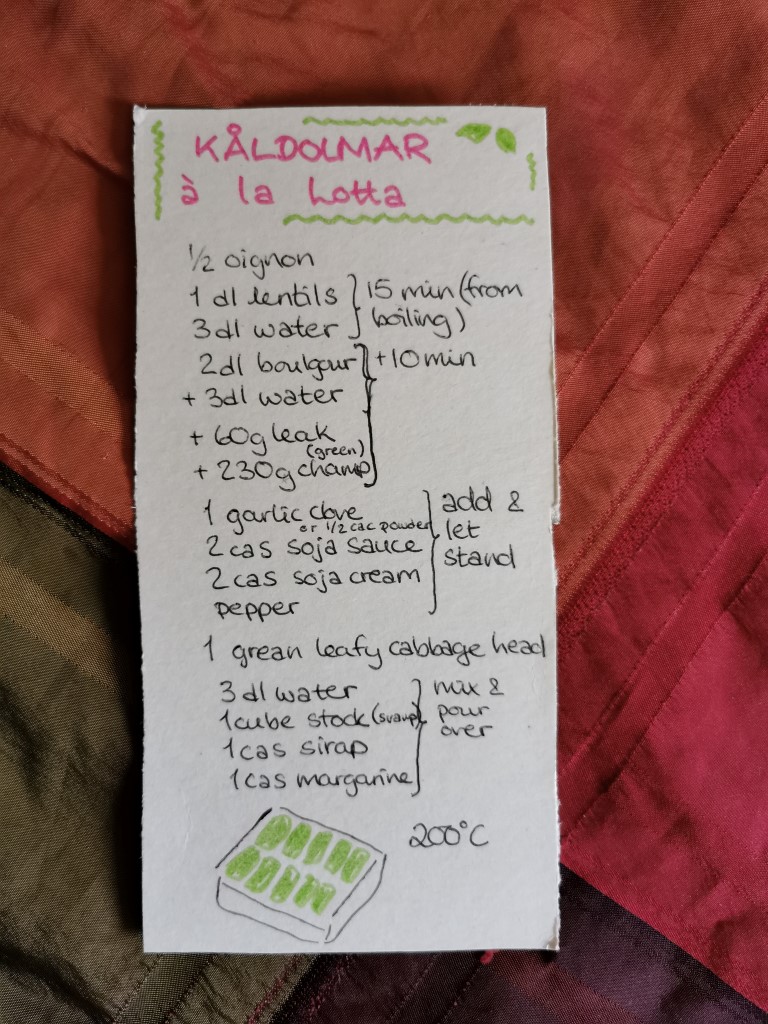 KÅLDOLMAR
à la Lotta
1/2 oignon
1 dl lentils
3dl water
15 min (from
boiling)
2dl boulgour
+ 3dl water
+ 60g leak
(green)
+ 230g champ
+10 min
1 garlic clove
or 1/2 cac powder
2 cas soja sauce
2 cas soja cream
pepper
add &
let
stand
1 grean leafy cabbage head
3 dl water
1 cube stock (svamp)
1 cas sirap
1 cas margarine
mix &
pour
over
200°C